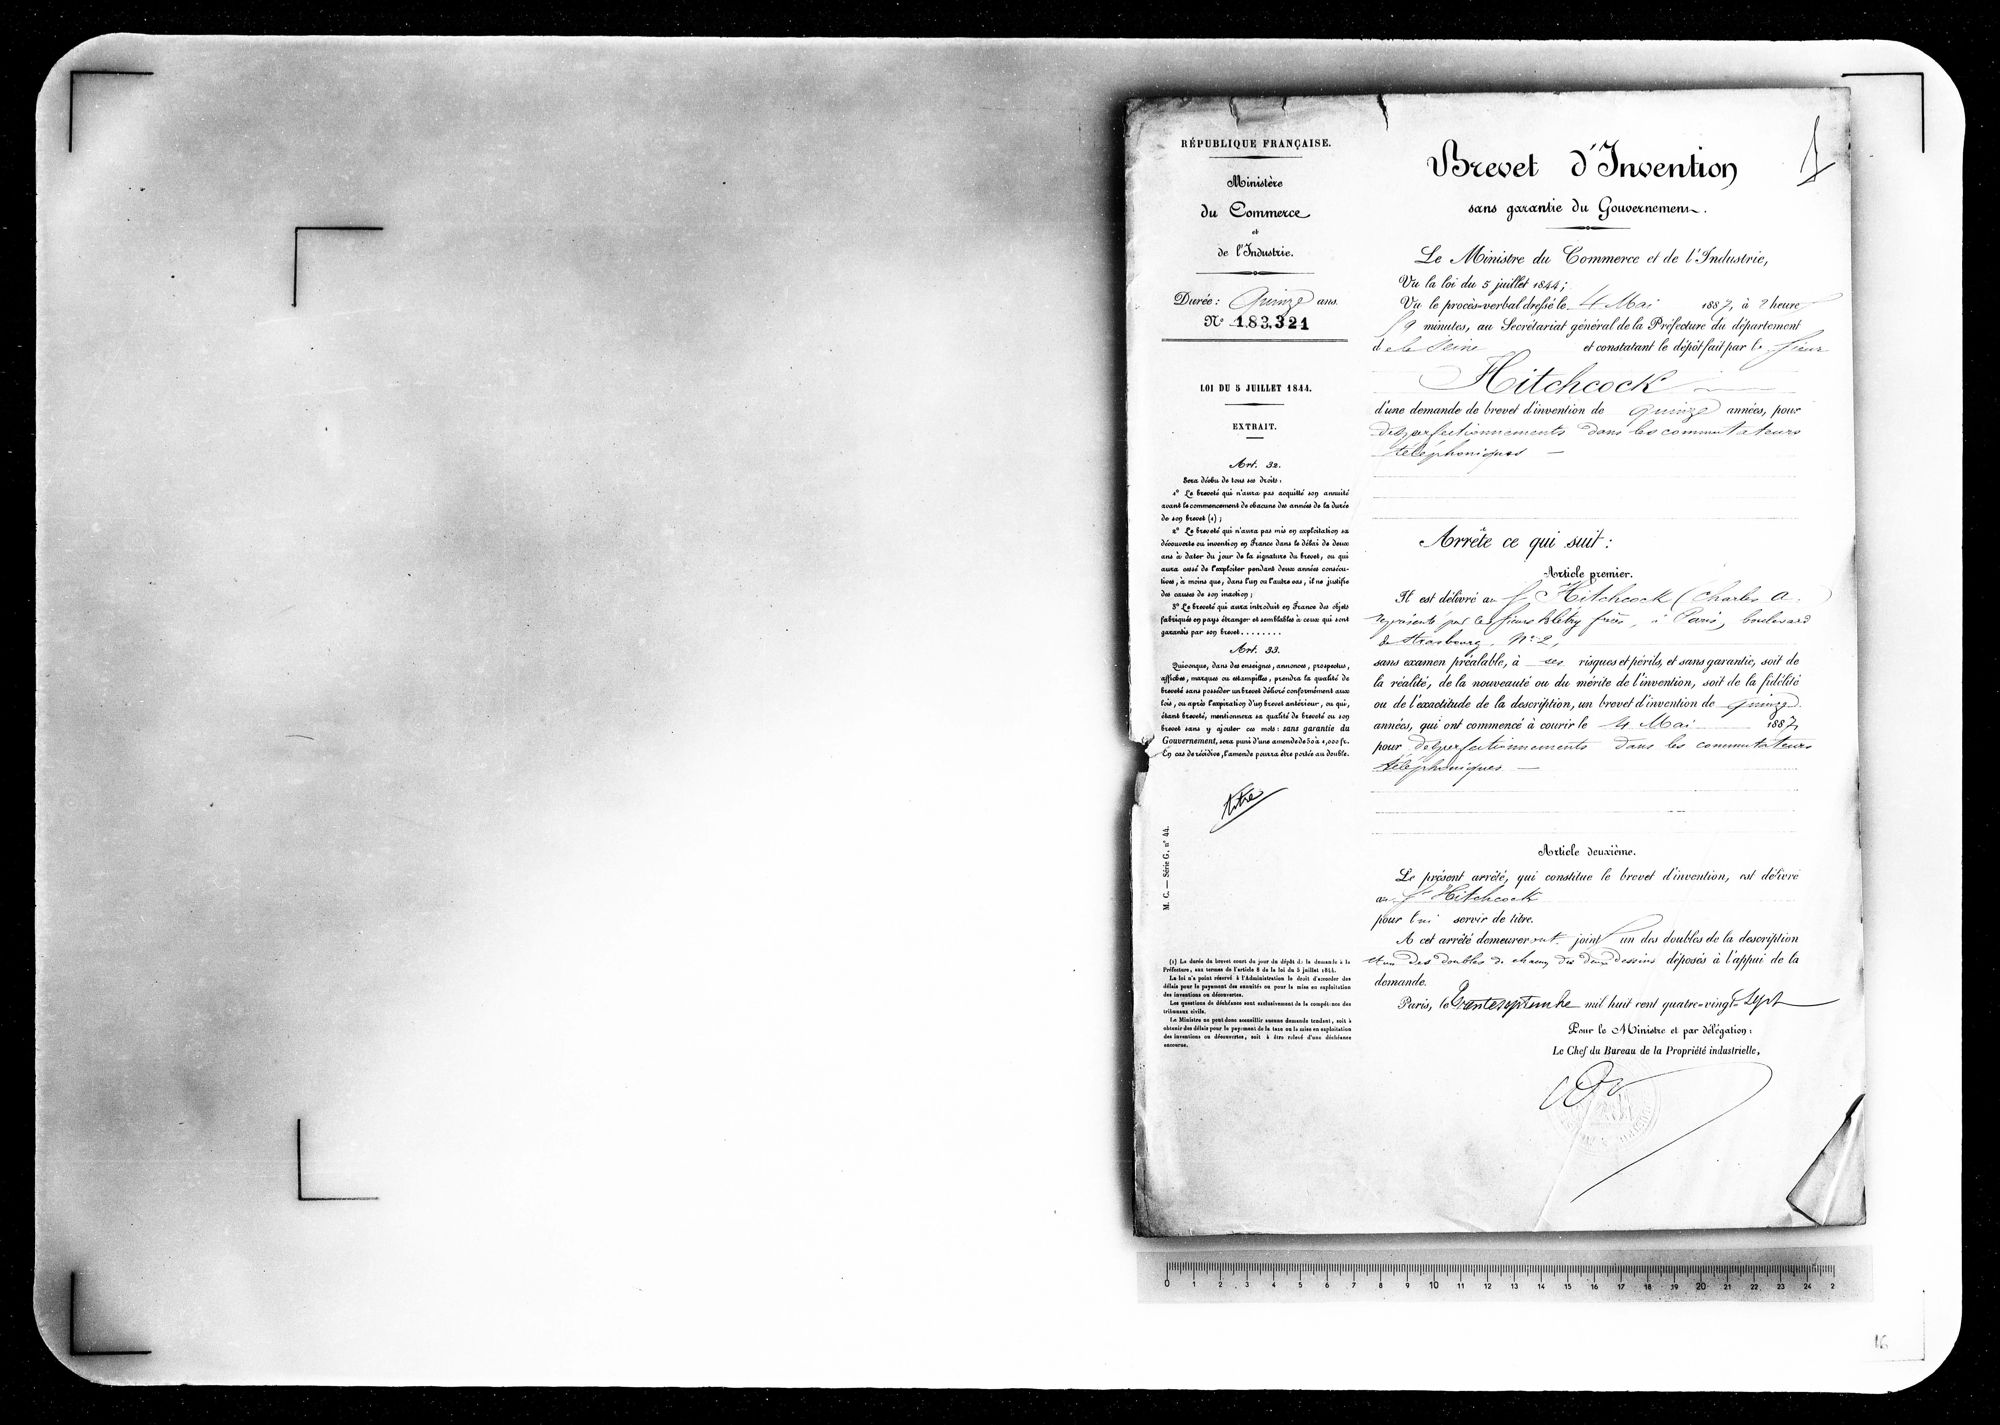 RÉPUBLIQUE FRANÇAISE.
Ministère
du Commerce
et
de l'Industrie.
Durée: Quinze ans.
N° 183,321
LOI DU 5 JUILLET 1844.
EXTRAIT.
Art. 32.
Sera déchu de tous ses droits:
1° Le breveté qui n'aura pas acquitté son annuité
avant le commencement de chacune des années de la durée
de son brevet (1);
2° Le breveté qui n'aura pas mis en exploitation sa
découverte ou invention en France dans le délai de deux
ans à dater du jour de la signature du brevet, ou qui
aura cessé de l'exploiter pendant deux années consécu-
tives, à moins que, dans l'un ou l'autre cas, il ne justifie
des causes de son inaction;
3° Le breveté qui aura introduit en France des objets
fabriqués en pays étranger et semblables à ceux qui sont
garantis par son brevet........
Art. 33.
Quiconque, dans des enseignes, annonces, prospectus,
affiches, marques ou estampilles, prendra la qualité de
breveté sans posséder un brevet délivré conformément aux
lois, ou après l'expiration d'un brevet antérieur, ou qui,
étant breveté, mentionnera sa qualité de breveté ou son
brevet sans y ajouter ces mots: sans garantie du
Gouvernement, sera puni d'une amende de 50 à 1,000 fr.
En cas de récidive, l'amende pourra être portée au double.
titre
M. C. — Série G. n° 44.
(1) La durée du brevet court du jour du dépôt de la demande à la
Préfecture, aux termes de l'article 8 de la loi du 5 juillet 1844.
La loi n'a point réservé à l'Administration le droit d'accorder des
délais pour le payement des annuités ou pour la mise en exploitation
des inventions ou découvertes.
Les questions de déchéance sont exclusivement de la compétence des
tribunaux civils.
Le Ministre ne peut donc accueillir aucune demande tendant, soit à
obtenir des délais pour le payement de la taxe ou la mise en exploitation
des inventions ou découvertes, soit à être relevé d'une déchéance
encourue.
Brevet d'Invention
sans garantie du Gouvernement.
Le Ministre du Commerce et de l'Industrie,
Vu la loi du 5 juillet 1844;
Vu le procès-verbal dressé le 4 Mai 1887, à 2 heures
59 minutes, au Secrétariat général de la Préfecture du département
de la Seine et constatant le dépôt fait par le sieur
Hitchcock
d'une demande de brevet d'invention de quinze années, pour
des perfectionnements dans les commutateurs
téléphoniques —
Arrête ce qui suit:
Article premier.
Il est délivré au Sr Hitchcock (Charles A.)
représenté par les sieurs Blétry frères, à Paris, boulevard
de Strasbourg, N° 2,
sans examen préalable, à ses risques et périls, et sans garantie, soit de
la réalité, de la nouveauté ou du mérite de l'invention, soit de la fidélité
ou de l'exactitude de la description, un brevet d'invention de quinze
années, qui ont commencé à courir le 4 Mai 1887
pour des perfectionnements dans les commutateurs
téléphoniques —
Article deuxième.
Le présent arrêté, qui constitue le brevet d'invention, est délivré
au Sr Hitchcock
pour lui servir de titre.
A cet arrêté demeureront joints un des doubles de la description
et un des doubles de chacun des deux dessins déposés à l'appui de la
demande.
Paris, le trente septembre mil huit cent quatre-vingt-sept
Pour le Ministre et par délégation:
Le Chef du Bureau de la Propriété industrielle,
0 1 2 3 4 5 6 7 8 9 10 11 12 13 14 15 16 17 18 19 20 21 22 23 24 2
16